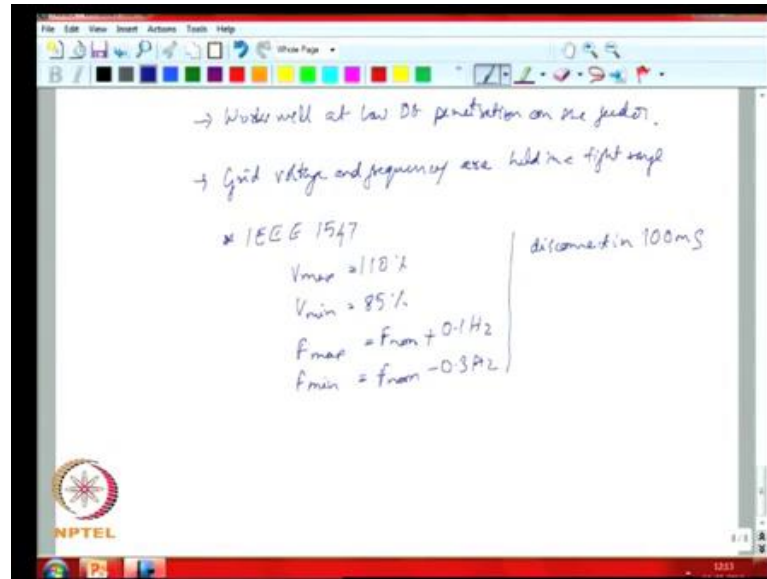 File Edit View Insert Actions Tools Help
Whole Page
B I
→ Works well at low DG penetration on the feeder.
→ Grid voltage and frequency are held in a tight range
* IEEE 1547
Vmax = 110%
disconnect in 100ms
Vmin = 85%
fmax = fnom + 0.1Hz
fmin = fnom - 0.3Hz
NPTEL
8/8
12:13